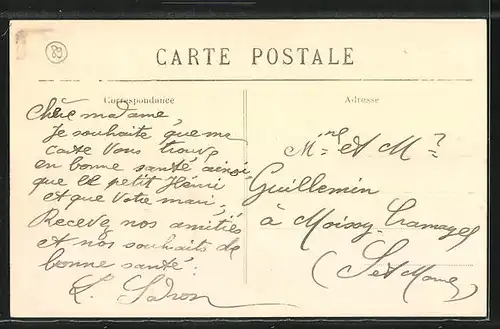 89
CARTE POSTALE
Correspondance
Adresse
Chère madame,
Je souhaite que ma
carte Vous trouve
en bonne santé ainsi
que le petit Henri
et que Votre mari,
Recevez nos amitiés
et nos souhaits de
bonne santé.
L. Sadron
Mme et Mr
Guillemin
à Moissy-Cramayel
(Set Marne)